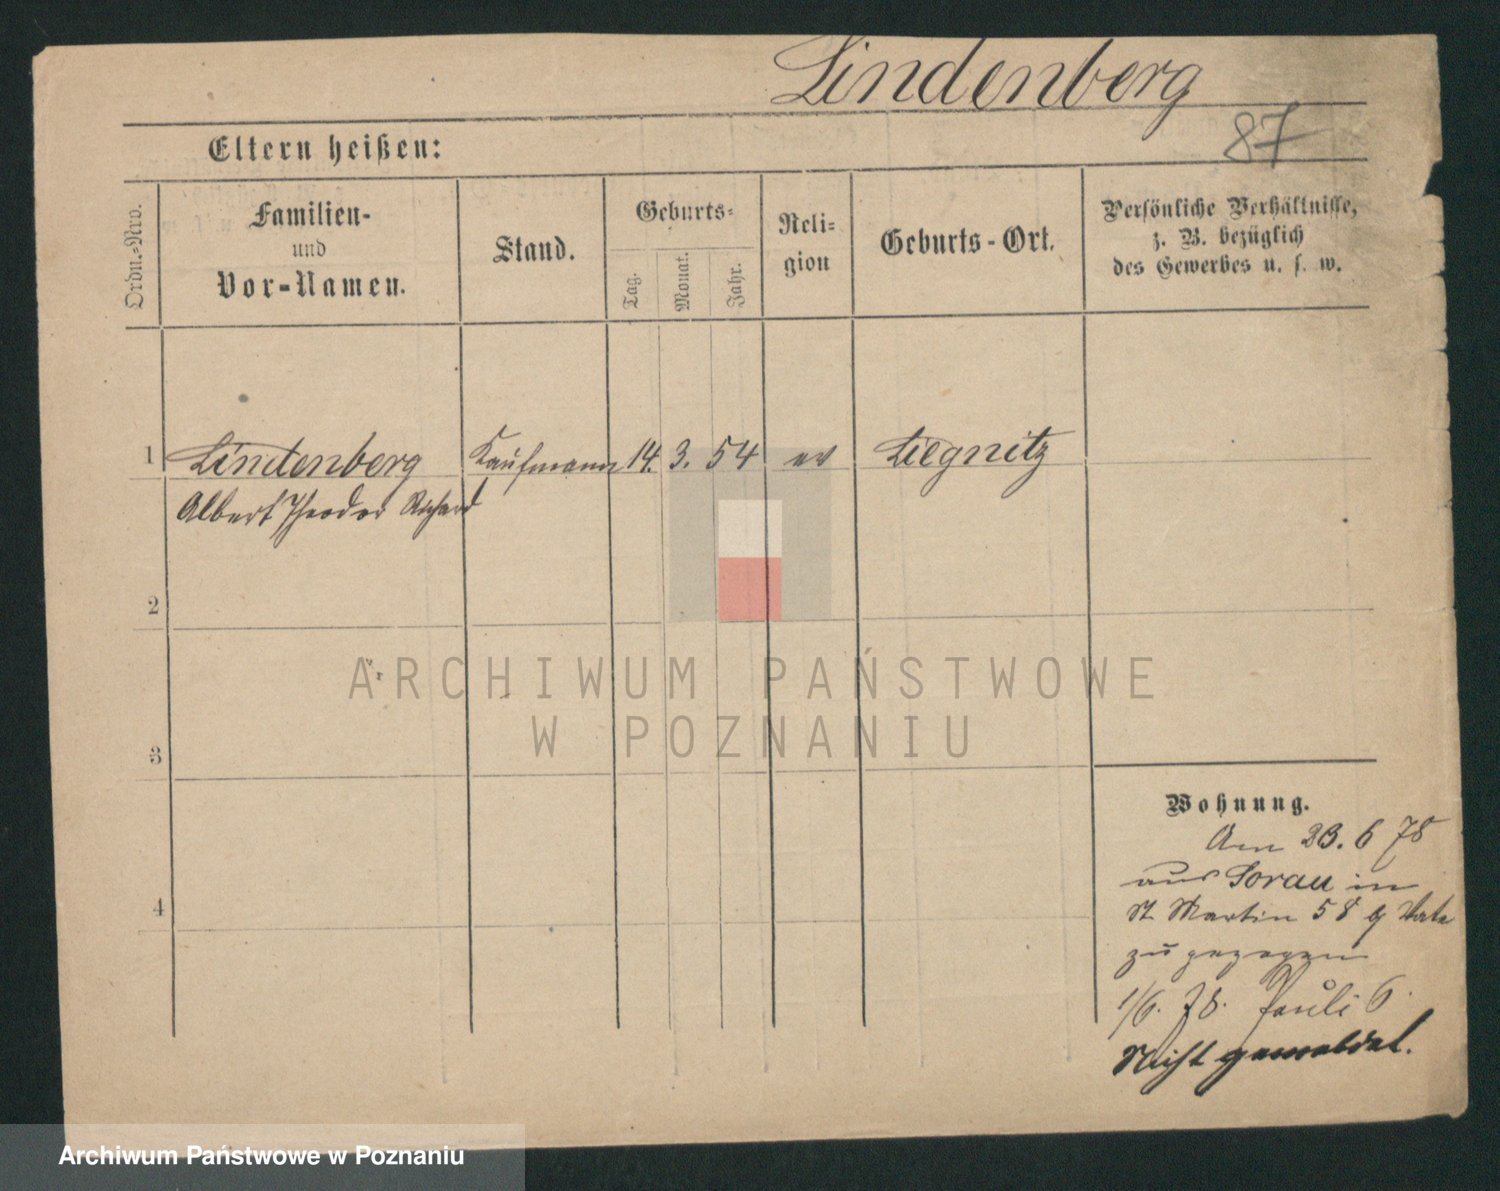 Lindenberg
87
Eltern heißen:
Ordn.-Nro.
Familien-
und
Vor-Namen.
Stand.
Geburts-
Tag.
Monat.
Jahr.
Reli-
gion
Geburts-Ort.
Persönliche Verhältnisse,
z. B. bezüglich
des Gewerbes u. s. w.
1 Lindenberg Kaufmann 14. 3. 54 ev Liegnitz
Albert Theodor Richard
2
3
4
ARCHIWUM PAŃSTWOWE
W POZNANIU
Wohnung.
Am 23. 6 78
aus Sorau in
St Martin 58
zugezogen
1/6. 78. Pauli 6.
Nicht gemeldet.
Archiwum Państwowe w Poznaniu